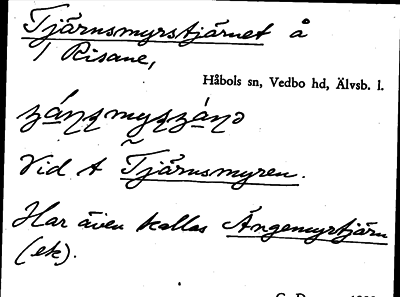 Tjärnsmyrstjärnet å
/ Risane,
Håbols sn, Vedbo hd, Älvsb. l.
Vid t Tjärnsmyren.
Har även kallas Ängemyrtjärn
(ek).